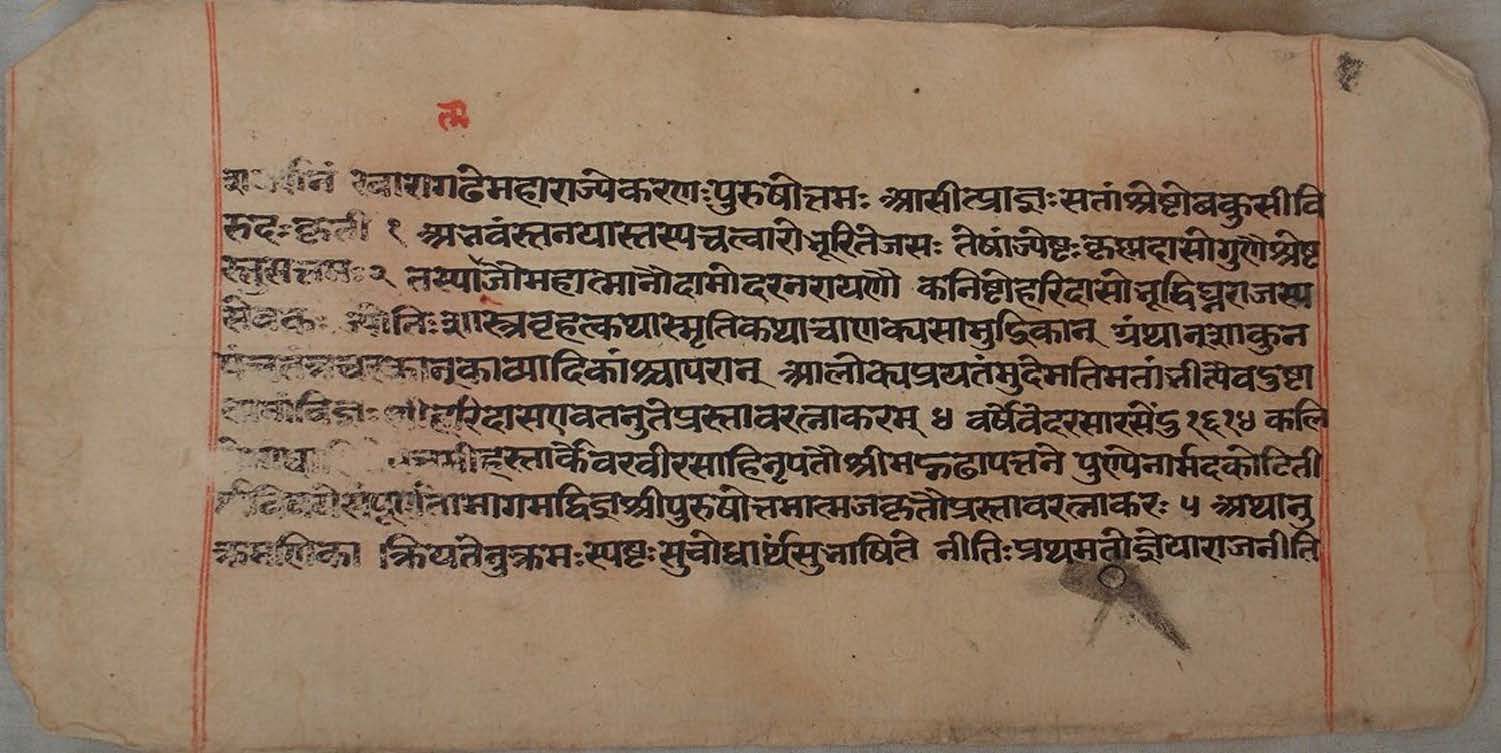 त्म
खारागढेमहाराज्येकरणःपुरुषोत्तमः आसीत्प्राज्ञःसतांश्रेष्टोबकुसीवि
रुदःकृती १ अभवंस्तनयास्तस्यचत्वारोभूरितेजसः तेषांज्येष्टःकृष्णदासोगुणैश्रेष्ट
स्तुसत्तमः २ तस्यानौमहात्मानौदामोदरनरायणौ कनिष्टोहरिदासोभूद्विघ्नराजस्य
सेवकः ज्योतिःशास्त्रवृहत्कथास्मृतिकथाचाणक्यसामुद्रिकान् ग्रंथान्शाकुन
कान्काव्यादिकांश्चापरान् आलोक्यप्रयतंमुदेमतिमतांनीत्यैवदुष्टा
हरिदासएवतनुतेप्रस्तावरत्नाकरम् ४ वर्षेवेदरसारसेंदु १६१४ कलि
हस्तार्केवरवीरसाहिनृपतौश्रीमफ्गढापत्तने पुण्येनार्मदकोटिती
संपूर्णतामागमद्विज्ञश्रीपुरुषोत्तमात्मजकृतौप्रस्तावरत्नाकरः ५ अथानु
क्रमणिका क्रियतेनुक्रमःस्पष्टःसुबोधार्थसुभाषिते नीतिःप्रथमतोज्ञेयाराजनीति